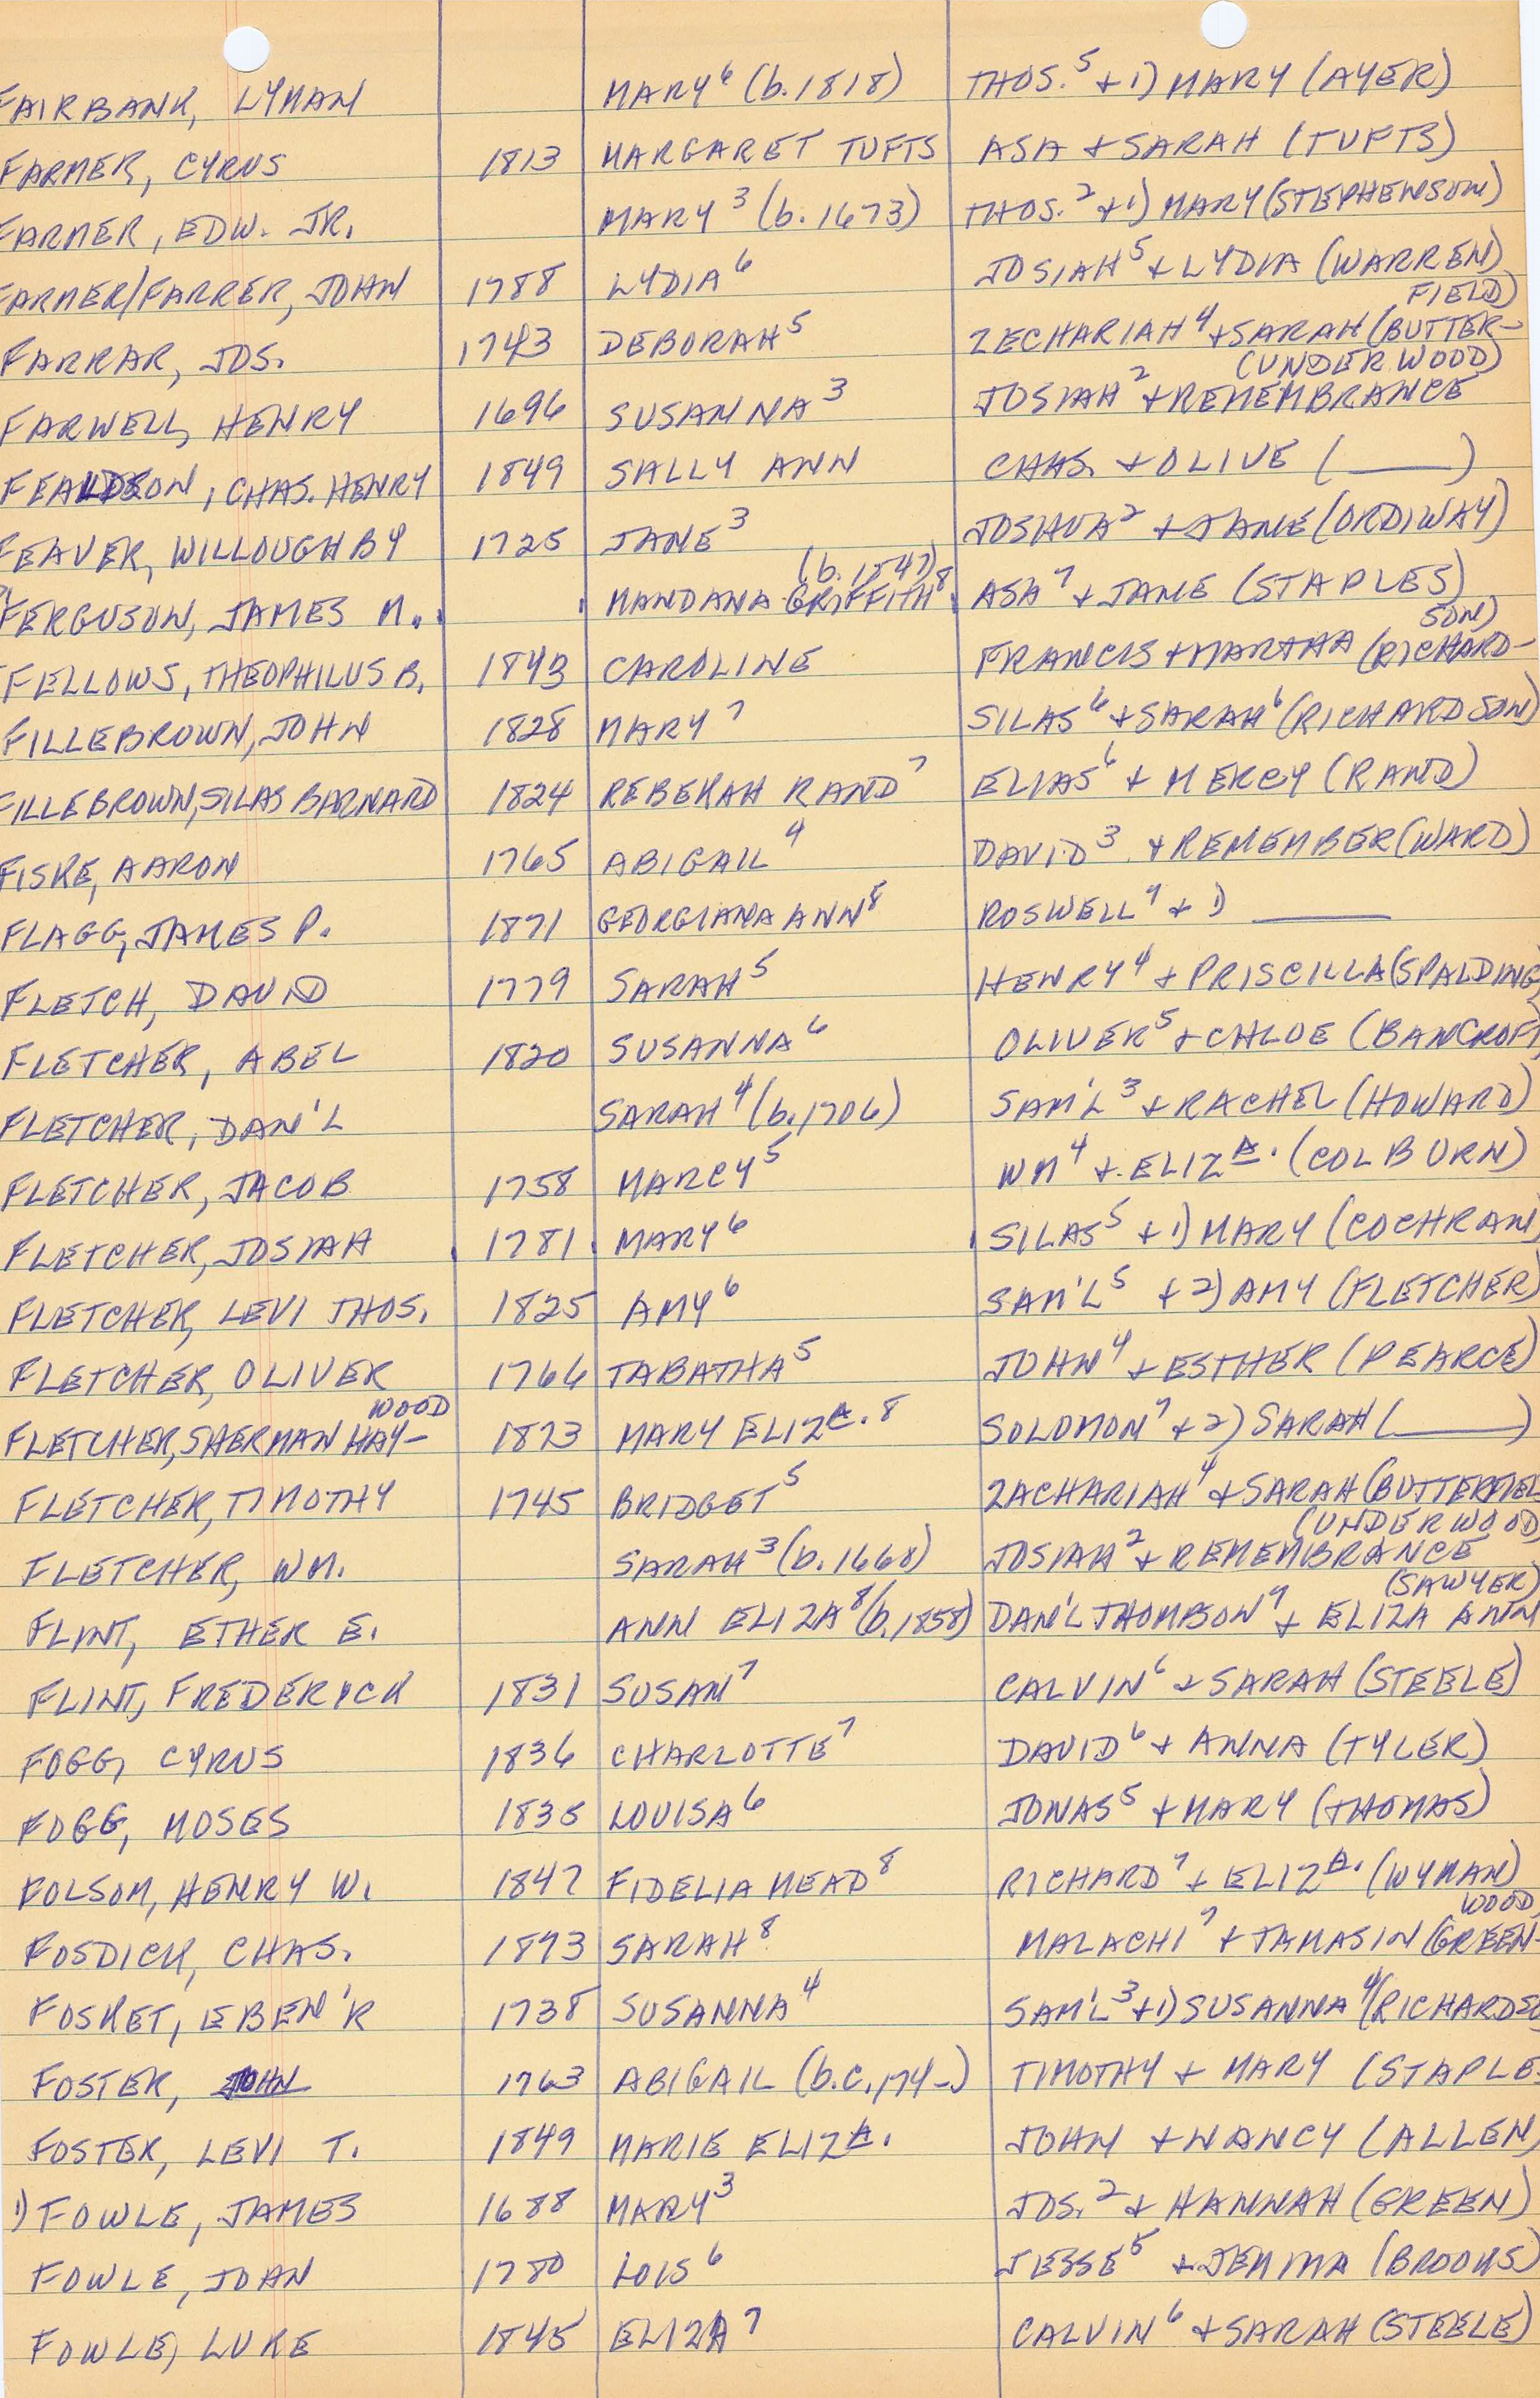 FAIRBANK, LYMAN MARY⁶ (b. 1818) THOS.⁵ + 1) MARY (AYER)
FARMER, CYRUS 1813 MARGARET TUFTS ASA + SARAH (TUFTS)
FARMER, EDW. JR. MARY³ (b. 1673) THOS.² + 1) MARY (STEPHENSON)
FARMER/FARRER, JOHN 1788 LYDIA⁶ JOSIAH⁵ + LYDIA (WARREN)
FIELD)
FARRAR, JOS. 1743 DEBORAH⁵ ZECHARIAH⁴ + SARAH (BUTTER-
(UNDERWOOD)
FARWELL, HENRY 1696 SUSANNA³ JOSIAH² + REMEMBRANCE
CHAS. HENRY 1849 SALLY ANN CHAS. + OLIVE (____)
FEAVER, WILLOUGHBY 1725 JANE³ JOSHUA² + JANE (ORDIWAY)
(b. 1847)
FERGUSON, JAMES M. MANDANA GRIFFITH⁸ ASA⁷ + JANE (STAPLES)
SON)
FELLOWS, THEOPHILUS B. 1843 CAROLINE FRANCIS + MARTHA (RICHARD-
FILLEBROWN, JOHN 1828 MARY⁷ SILAS⁶ + SARAH⁶ (RICHARDSON)
FILLEBROWN, SILAS BARNARD 1824 REBEKAH RAND⁷ ELIAS⁶ + MERCY (RAND)
FISKE, AARON 1765 ABIGAIL⁴ DAVID³ + REMEMBER (WARD)
FLAGG, JAMES P. 1871 GEORGIANA ANN⁸ ROSWELL⁷ + 1) ____
FLETCH, DAVID 1779 SARAH⁵ HENRY⁴ + PRISCILLA (SPALDING)
FLETCHER, ABEL 1820 SUSANNA⁶ OLIVER⁵ + CHLOE (BANCROFT)
FLETCHER, DAN'L SARAH⁴ (b. 1706) SAM'L³ + RACHEL (HOWARD)
FLETCHER, JACOB 1758 MARCY⁵ WM⁴ + ELIZA. (COLBURN)
FLETCHER, JOSIAH 1781 MARY⁶ SILAS⁵ + 1) MARY (COCHRAN)
FLETCHER, LEVI THOS. 1825 AMY⁶ SAM'L⁵ + 2) AMY (FLETCHER)
FLETCHER, OLIVER 1766 TABATHA⁵ JOHN⁴ + ESTHER (PEARCE)
WOOD
FLETCHER, SHERMAN HAY- 1873 MARY ELIZA.⁸ SOLOMON⁷ + 2) SARAH (____)
FLETCHER, TIMOTHY 1745 BRIDGET⁵ ZACHARIAH⁴ + SARAH (BUTTERFIEL
(UNDERWOOD)
FLETCHER, WM. SARAH³ (b. 1668) JOSIAH² + REMEMBRANCE
(SAWYER)
FLINT, ETHER E. ANN ELIZA⁸ (b. 1858) DAN'L THOMPSON⁷ + ELIZA ANN
FLINT, FREDERICK 1831 SUSAN⁷ CALVIN⁶ + SARAH (STEELE)
FOGG, CYRUS 1836 CHARLOTTE⁷ DAVID⁶ + ANNA (TYLER)
FOGG, MOSES 1835 LOUISA⁶ JONAS⁵ + MARY (THOMAS)
FOLSOM, HENRY W. 1847 FIDELIA MEAD⁸ RICHARD⁷ + ELIZA. (WYMAN)
WOOD)
FOSDICK, CHAS. 1873 SARAH⁸ MALACHI⁷ + TAMASIN (GREEN-
FOSKET, EBEN'R 1738 SUSANNA⁴ SAM'L³ + 1) SUSANNA⁴ (RICHARDSO
FOSTER, JOHN 1763 ABIGAIL (b.c. 174-) TIMOTHY + MARY (STAPLES
FOSTER, LEVI T. 1849 MARIE ELIZA. JOHN + NANCY (ALLEN)
1) FOWLE, JAMES 1688 MARY³ JOS.² + HANNAH (GREEN)
FOWLE, JOHN 1780 LOIS⁶ JESSE⁵ + JEMIMA (BROOKS)
FOWLE, LUKE 1845 ELIZA⁷ CALVIN⁶ + SARAH (STEELE)